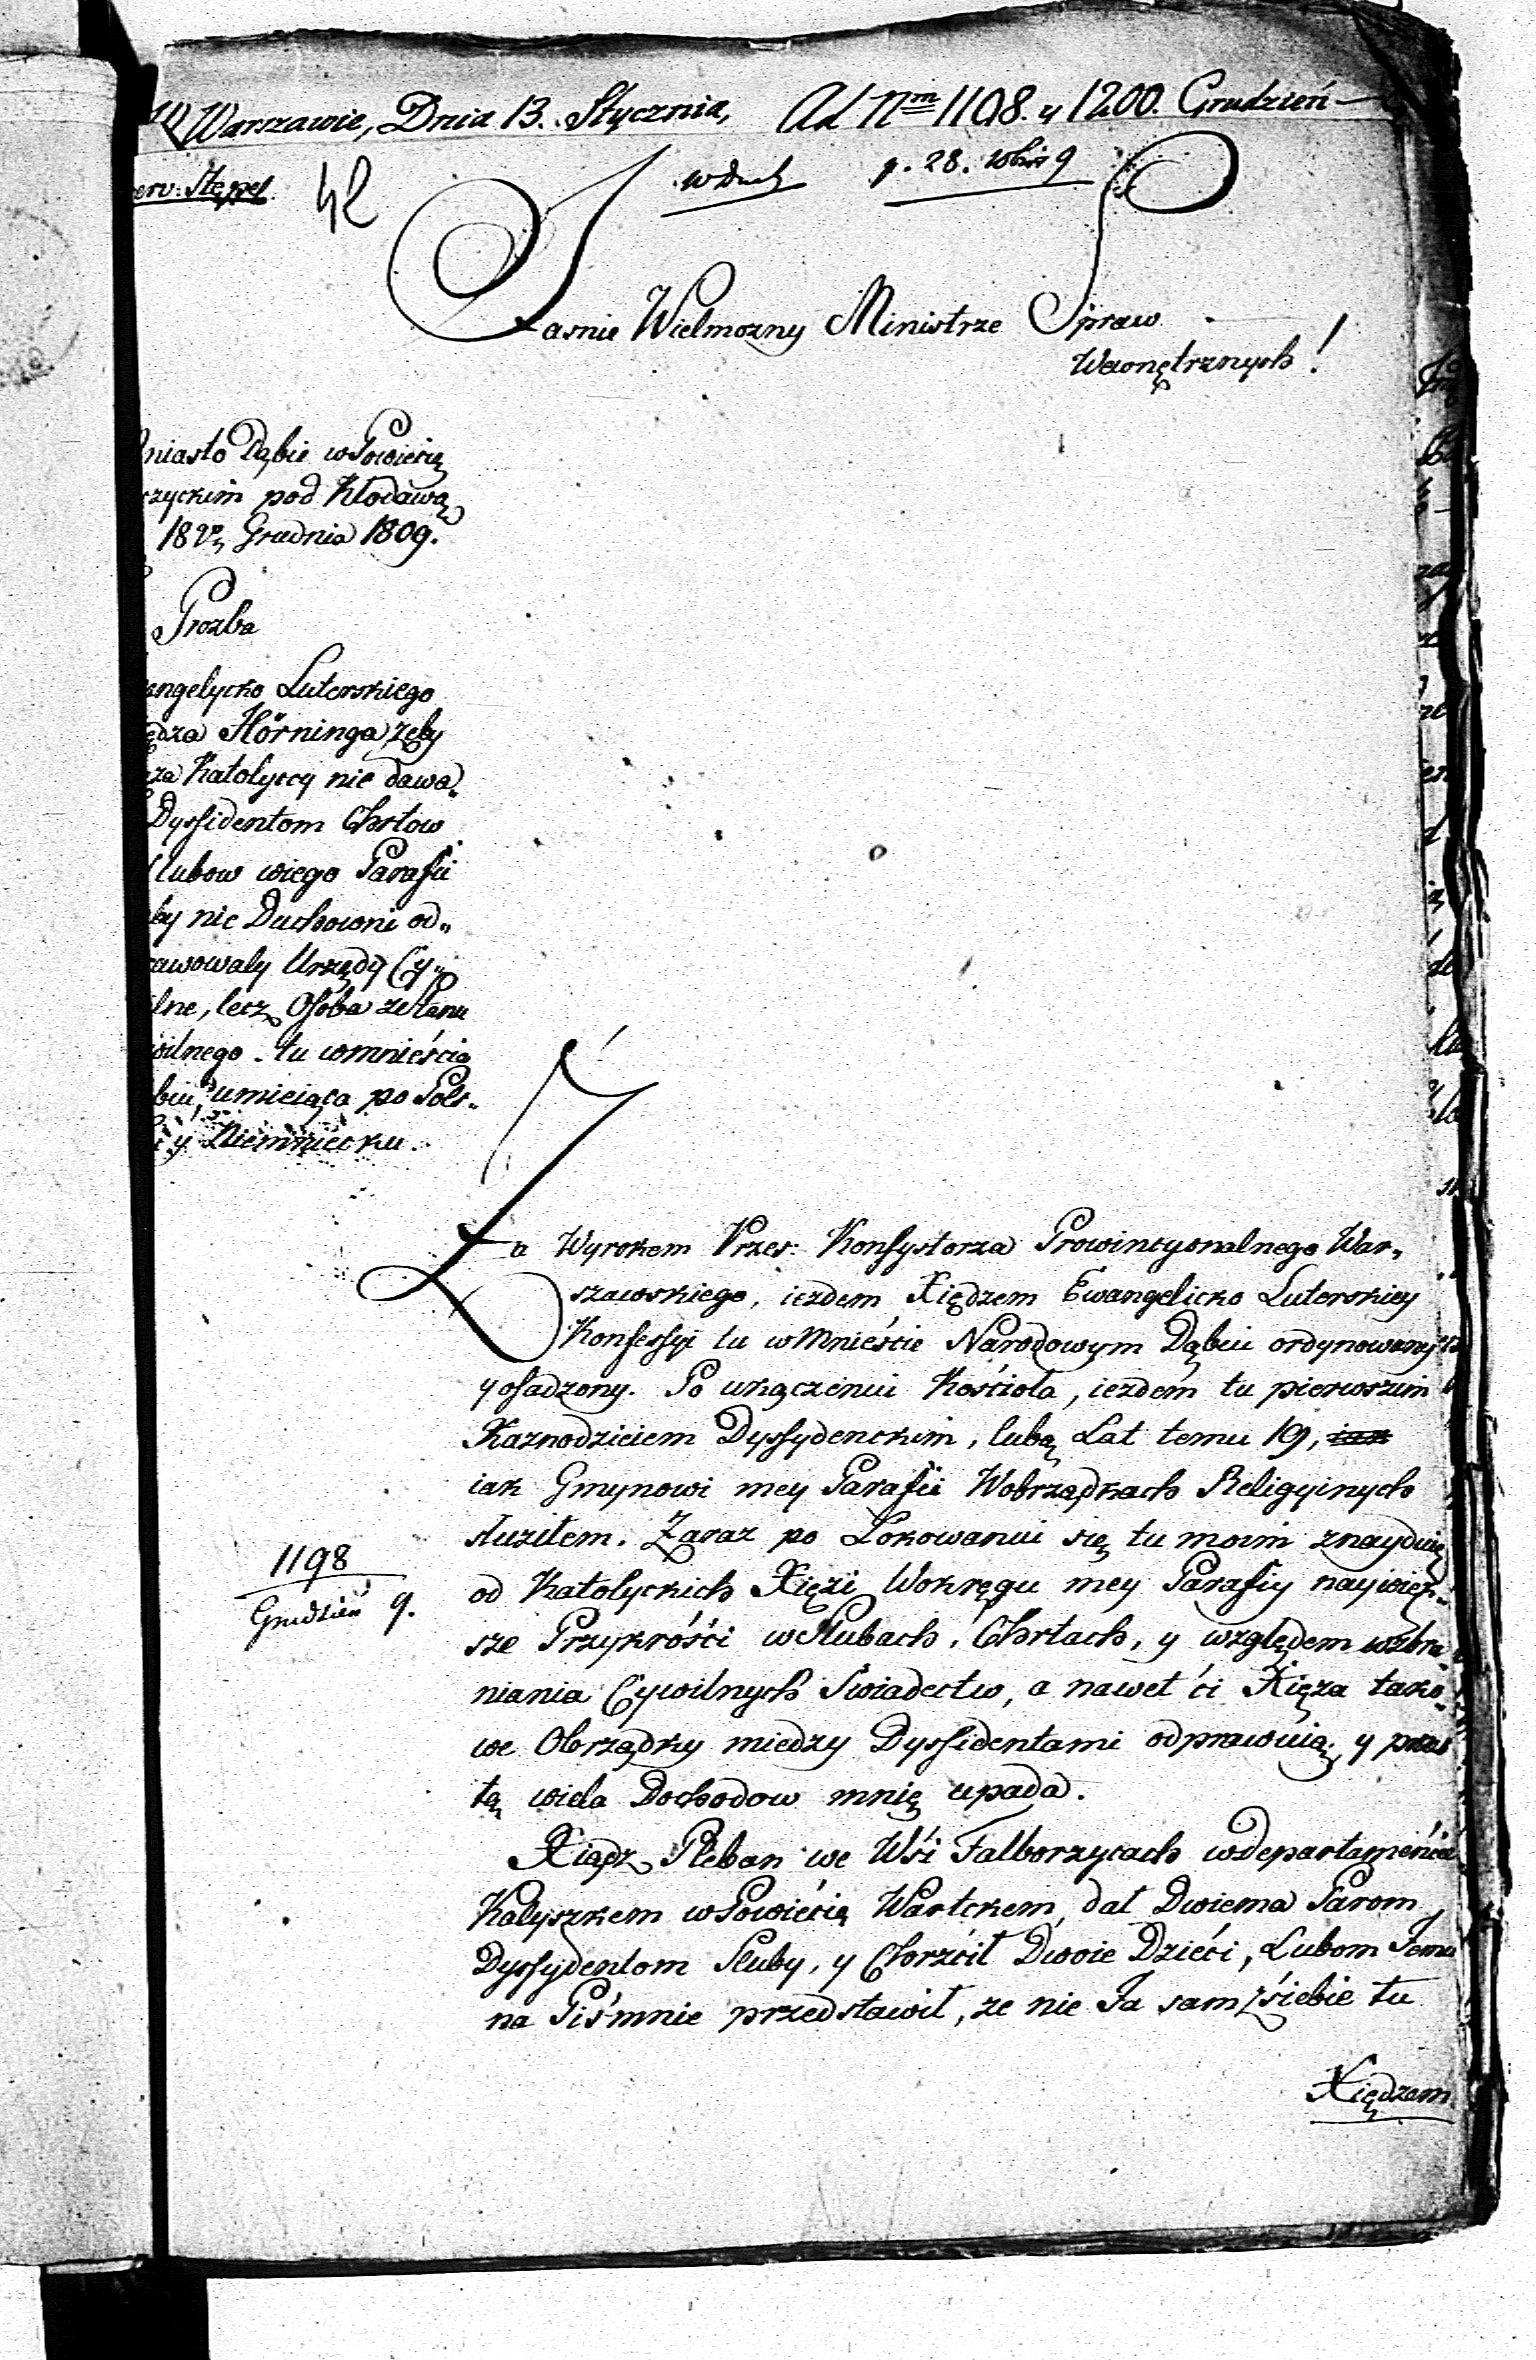 W Warszawie, Dnia 13. Stycznia, Ad Nm 1198. y 1200. Grudzień
erv: Stępel. 42
Jasnie Wielmozny Ministrze Spraw
Wewnętrznych!
miasto Dąbie w Powiecię
czyckim pod Kłodawą
18 Grudnia 1809.
Prozba
angelycko Luterskiego
ędza Hörninga żeby
ża Katolyccy nie dawa„
Dyssidentom Chrtow
slubow wiego Parafii
by nie Duchowni od„
rawowaly Urzędy Cy„
ilne, lecz Osoba ze Stanu
wilnego tu wmnieścię
biu, umieiąca po Pols„
i y Niemniecku.
Za Wyrokem Przes: Konsystorza Prowincyonalnego War„
szawskiego, iezdem Xiędzem Ewangelicko Luterskiey
Konfessyi tu w Mnieście Narodowym Dąbiu ordynowany
y osadzony. Po ukączeniu Kościoła, iezdem tu pierwszim
Kaznodzieiem Dyssydenckim, lubą Lat temu 19,
iak Gmynowi mey Parafii Wobrządkach Religyinych
służiłem. Zaraz po Lokowaniu się tu moim znayduię
od Katolyckich Xięzi Wokręgu mey Parafiy naywięk„
sze Przykrości w Slubach, Chrtach, y względem wzbra„
niania Cywilnych Swiadectw, a nawet ci Xięza tako„
we Obrządky miedzy Dyssidentami odprawuią, y przes
tą wiela Dochodow mnię upada.
1198
Grudzień 9.
Xiądz Pleban we Wśi Falborzycach wdepartamencie
Kalyszkem w Powiecię Wartckem, dał Dwiema Parom
Dyssydentom Sluby, y Chrzcił Dwoie Dzieci, Lubom Jemu
na Piśmnie przedstawił, ze nie Ja sam z siebie tu
Xiędzem